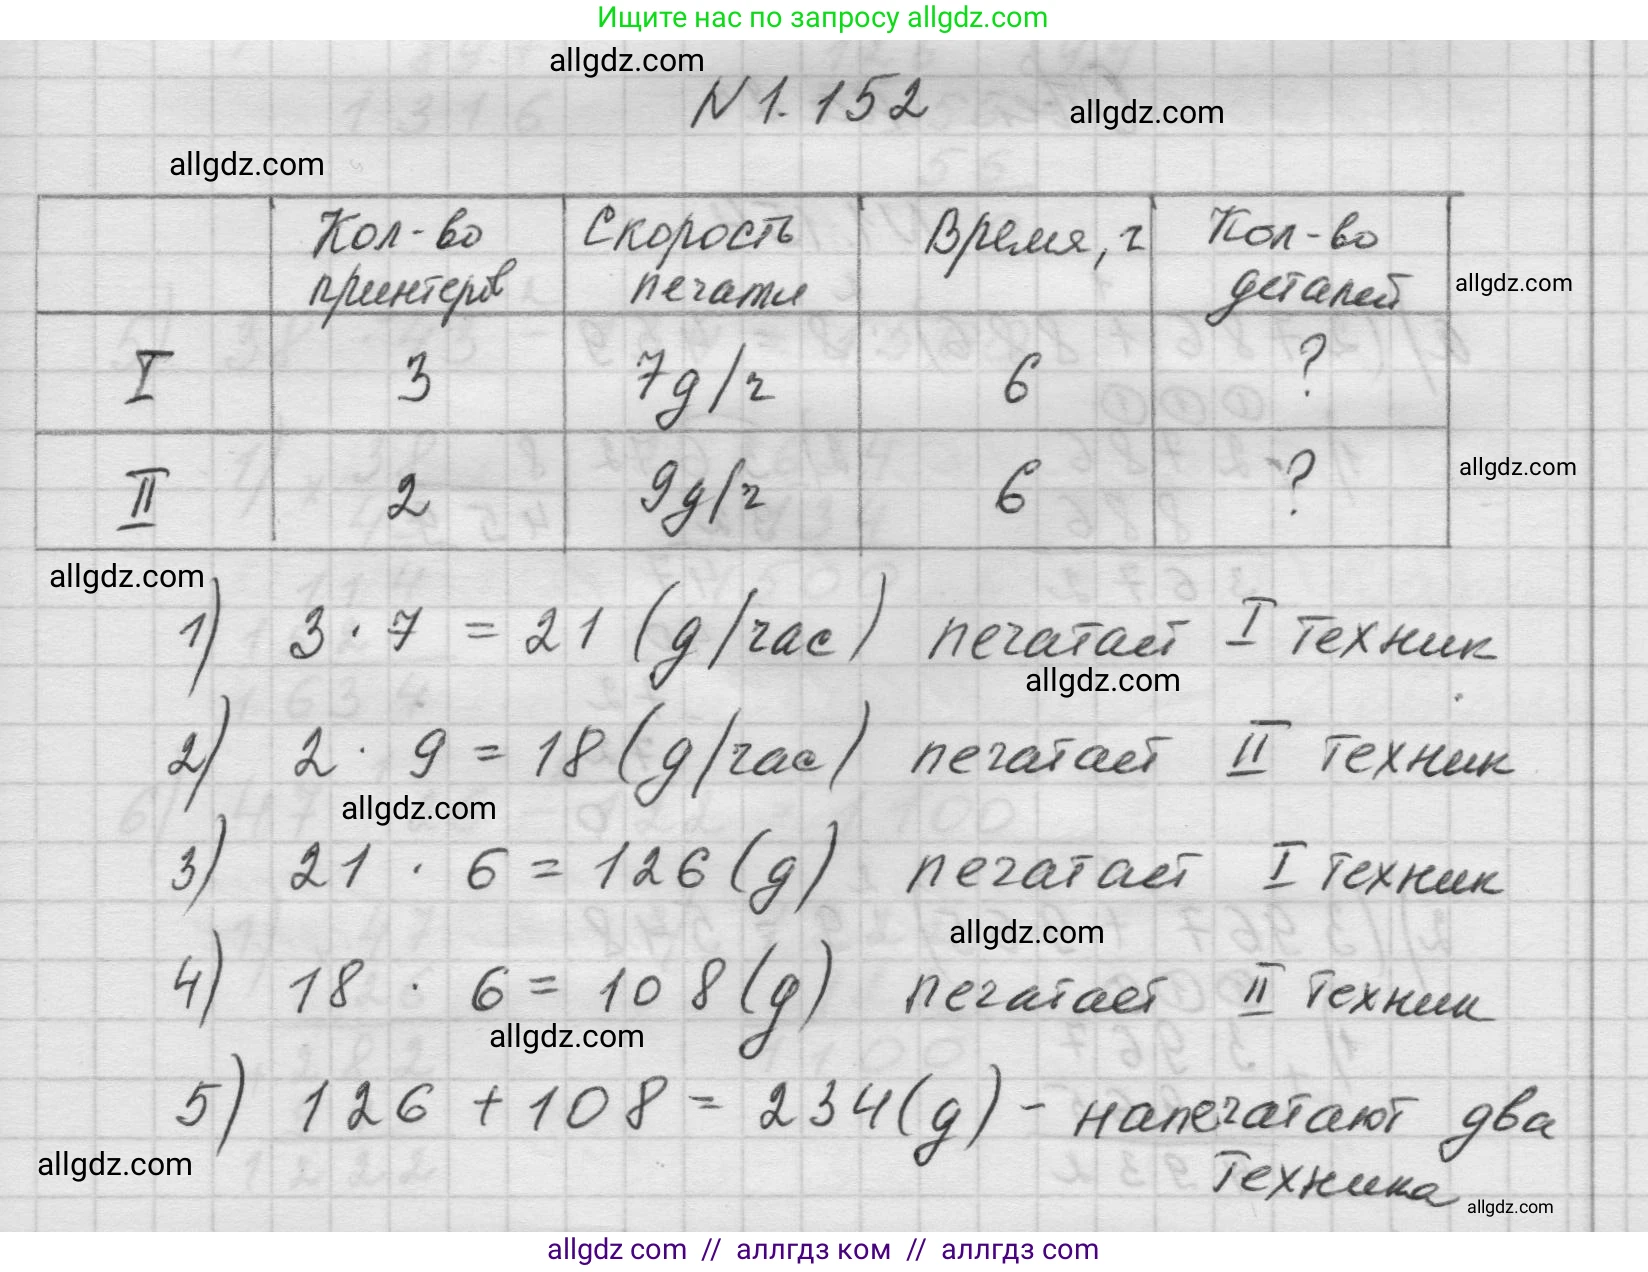 Ищите нас по запросу allgdz.com
allgdz.com
N 1.152
allgdz.com
allgdz.com
Кол-во принтеров Скорость печати Время, ч Кол-во деталей
allgdz.com
I 3 7д/ч 6 ?
II 2 9д/ч 6 ?
allgdz.com
allgdz.com
1) 3 · 7 = 21 (д/час) печатает I техник
allgdz.com
2) 2 · 9 = 18 (д/час) печатает II техник
allgdz.com
3) 21 · 6 = 126 (д) печатает I техник
allgdz.com
4) 18 · 6 = 108 (д) печатает II техник
allgdz.com
5) 126 + 108 = 234 (д) - напечатают два
allgdz.com
техника
allgdz.com
allgdz com // аллгдз ком // аллгдз com